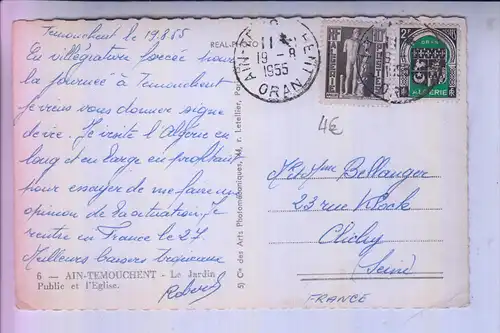 Temouchent le 19.8.55
En villégiature forcée pour
la journée à Temouchent
je viens vous donner signe
de vie. Je visite l'Algérie en
long et en large en profitant
pour essayer de me faire une
opinion de la situation. Je
rentre en France le 27
Meilleurs baisers
Robert
6 — AIN-TEMOUCHENT - Le Jardin
Public et l'Eglise.
REAL-PHOTO
Sté des Arts Photomécaniques, M. r. Letellier,
AIN-T
11
19 -8
1955
ORAN
ORAN
ALGERIE
4€
Mr et Mme Bellanger
23 rue Klock
Clichy
(Seine)
FRANCE